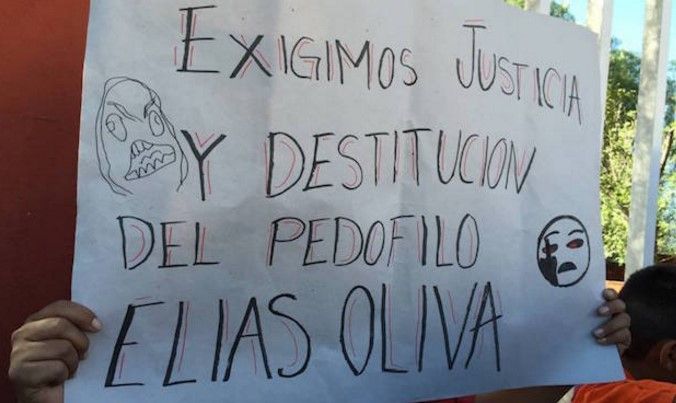 EXIGIMOS JUSTICIA
Y DESTITUCION
DEL PEDOFILO
ELIAS OLIVA